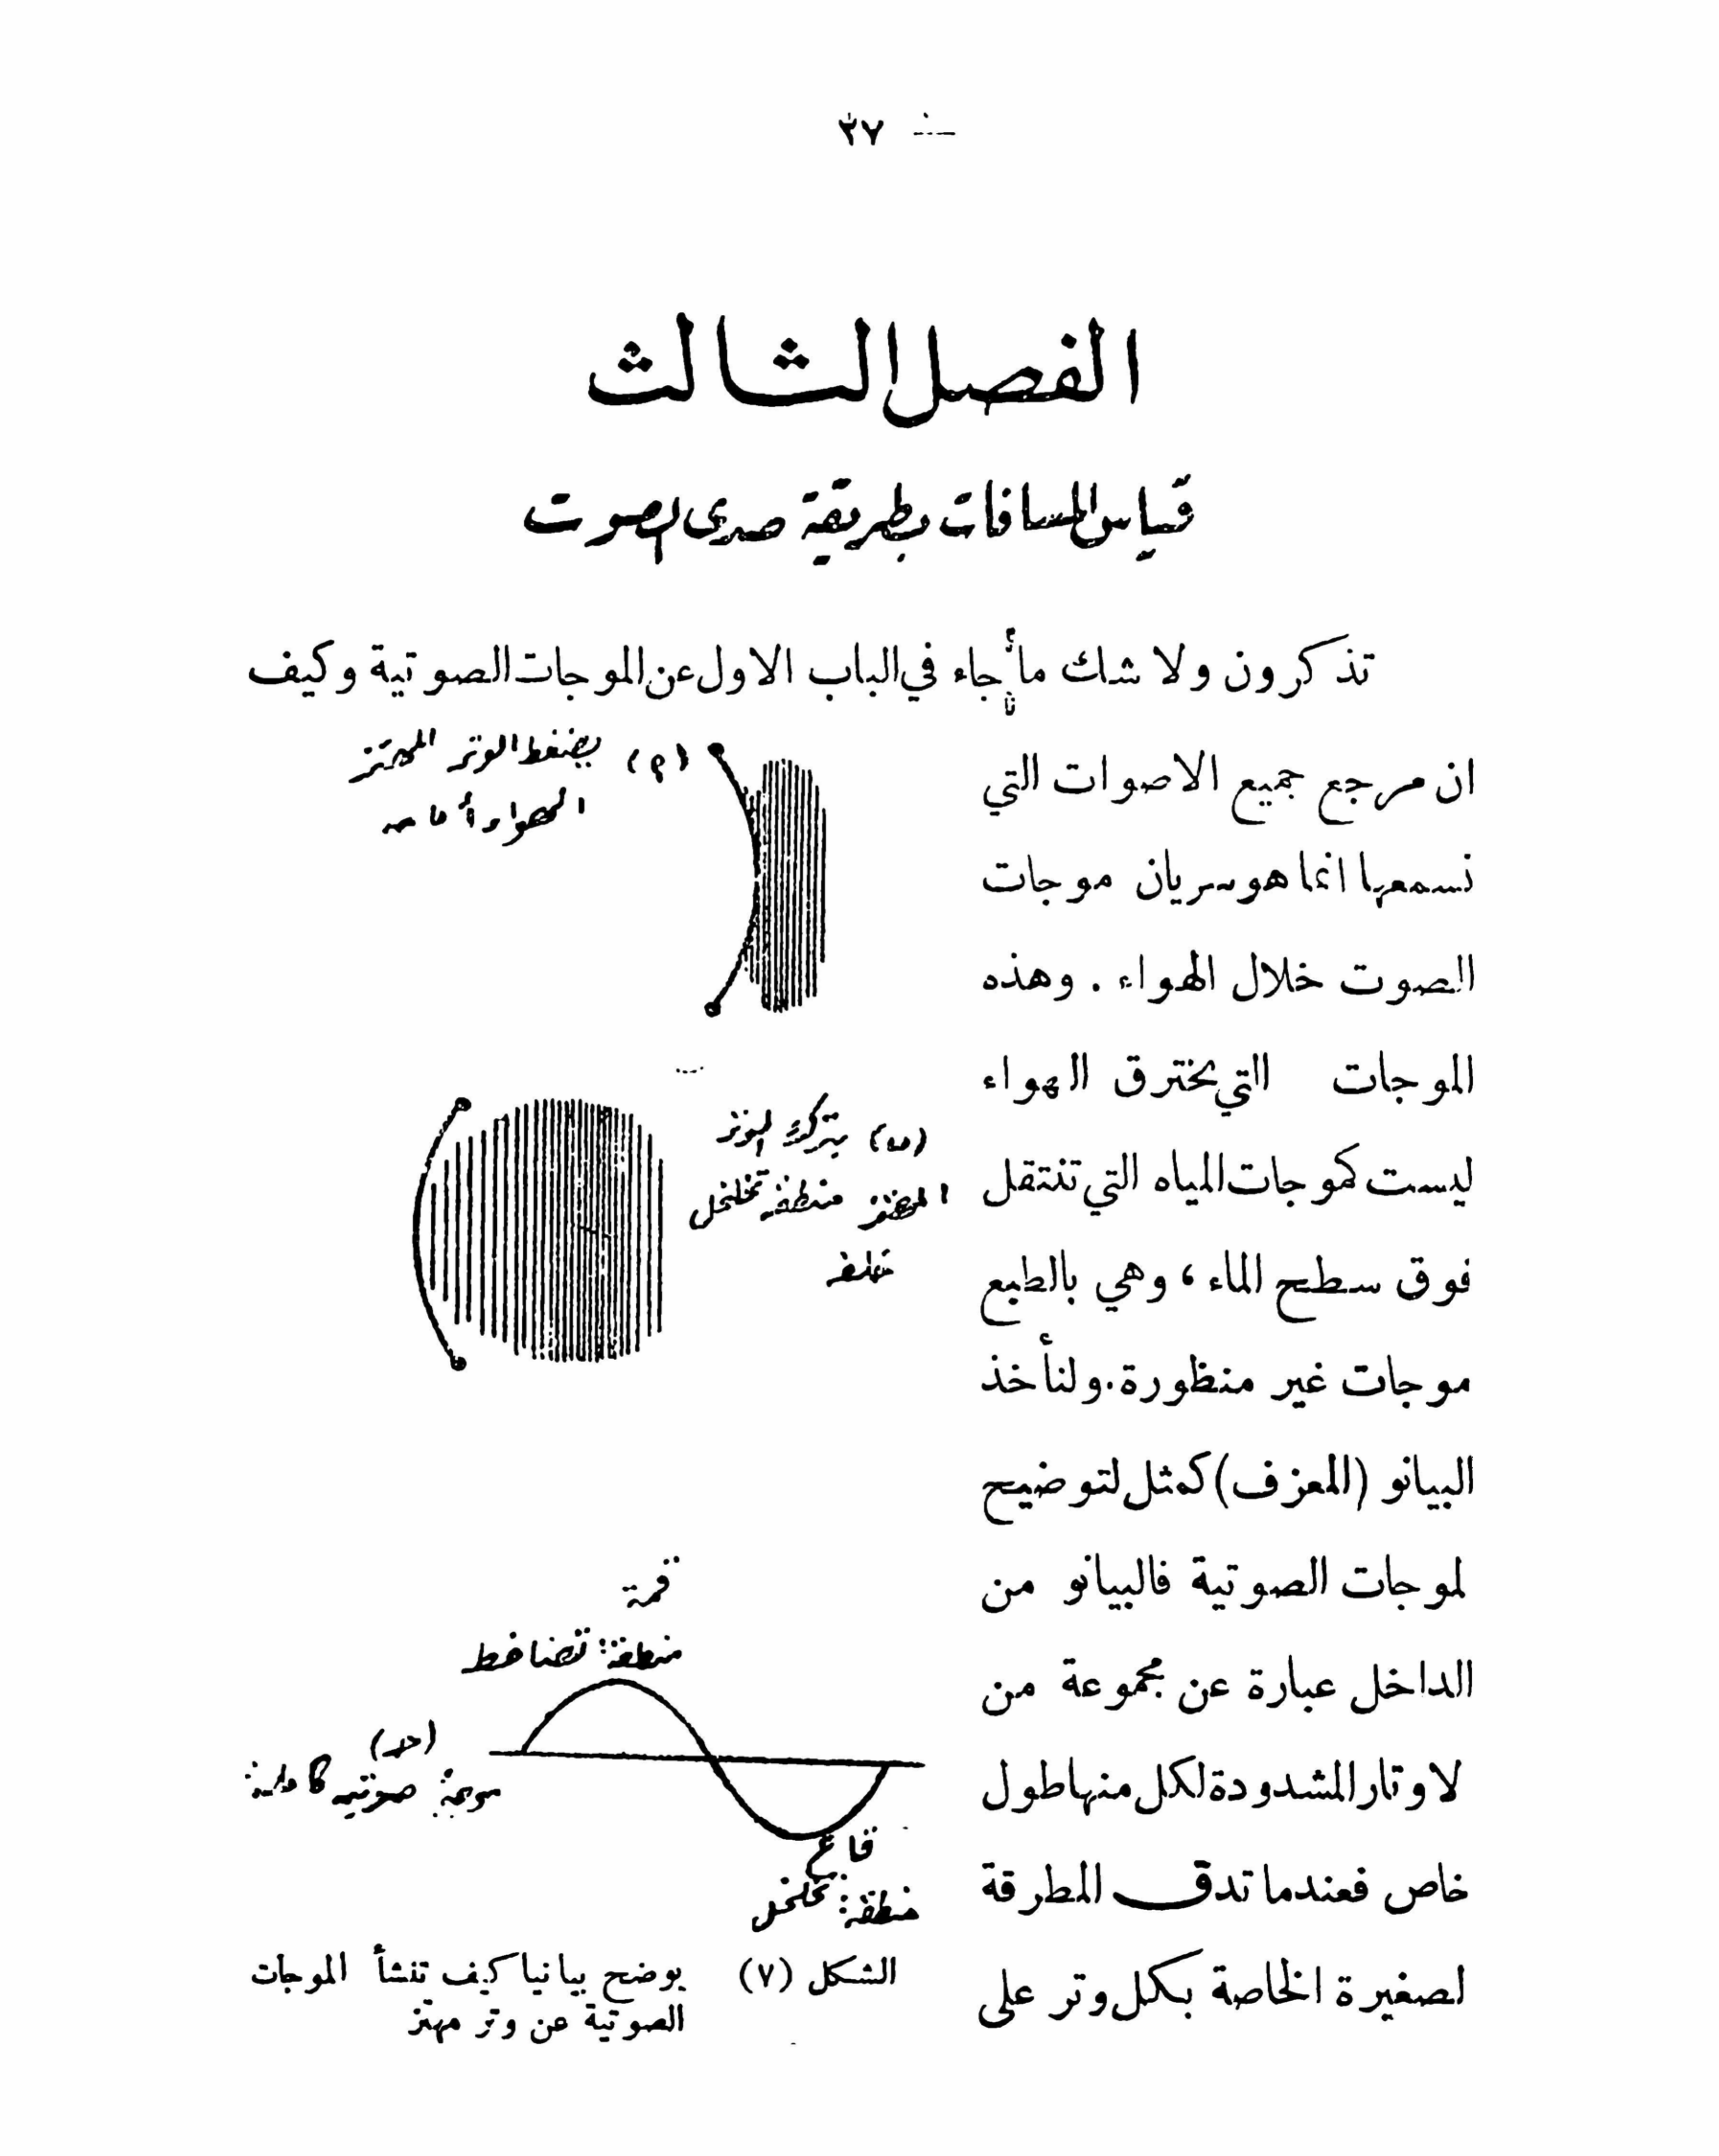 ٢٧ —
الفصل الثالث
قياس المسافات بطريقة صدى الصوت
تذكرون ولا شك ما جاء في الباب الاول عن الموجات الصوتية وكيف
ان مرجع جميع الاصوات التي
نسمعها انما هو سريان موجات
الصوت خلال الهواء . وهذه
الموجات التي تخترق الهواء
ليست كموجات المياه التي تنتقل
فوق سطح الماء ، وهي بالطبع
موجات غير منظورة . ولنأخذ
البيانو (المعزف) كمثل لتوضيح
لموجات الصوتية فالبيانو من
الداخل عبارة عن مجموعة من
لاوتار المشدودة لكل منها طول
خاص فعندما تدق المطرقة
لصغيرة الخاصة بكل وتر على
(م) يضغط الوتر المهتز
الهواء أمامه
(ب) يترك الوتر
المهتز منطقة تخلخل
خلفه
قمة
منطقة تضاغط
(حـ)
موجة صوتية كاملة
قاع
منطقة تخلخل
الشكل (٧) يوضح بيانيا كيف تنشأ الموجات
الصوتية عن وتر مهتز